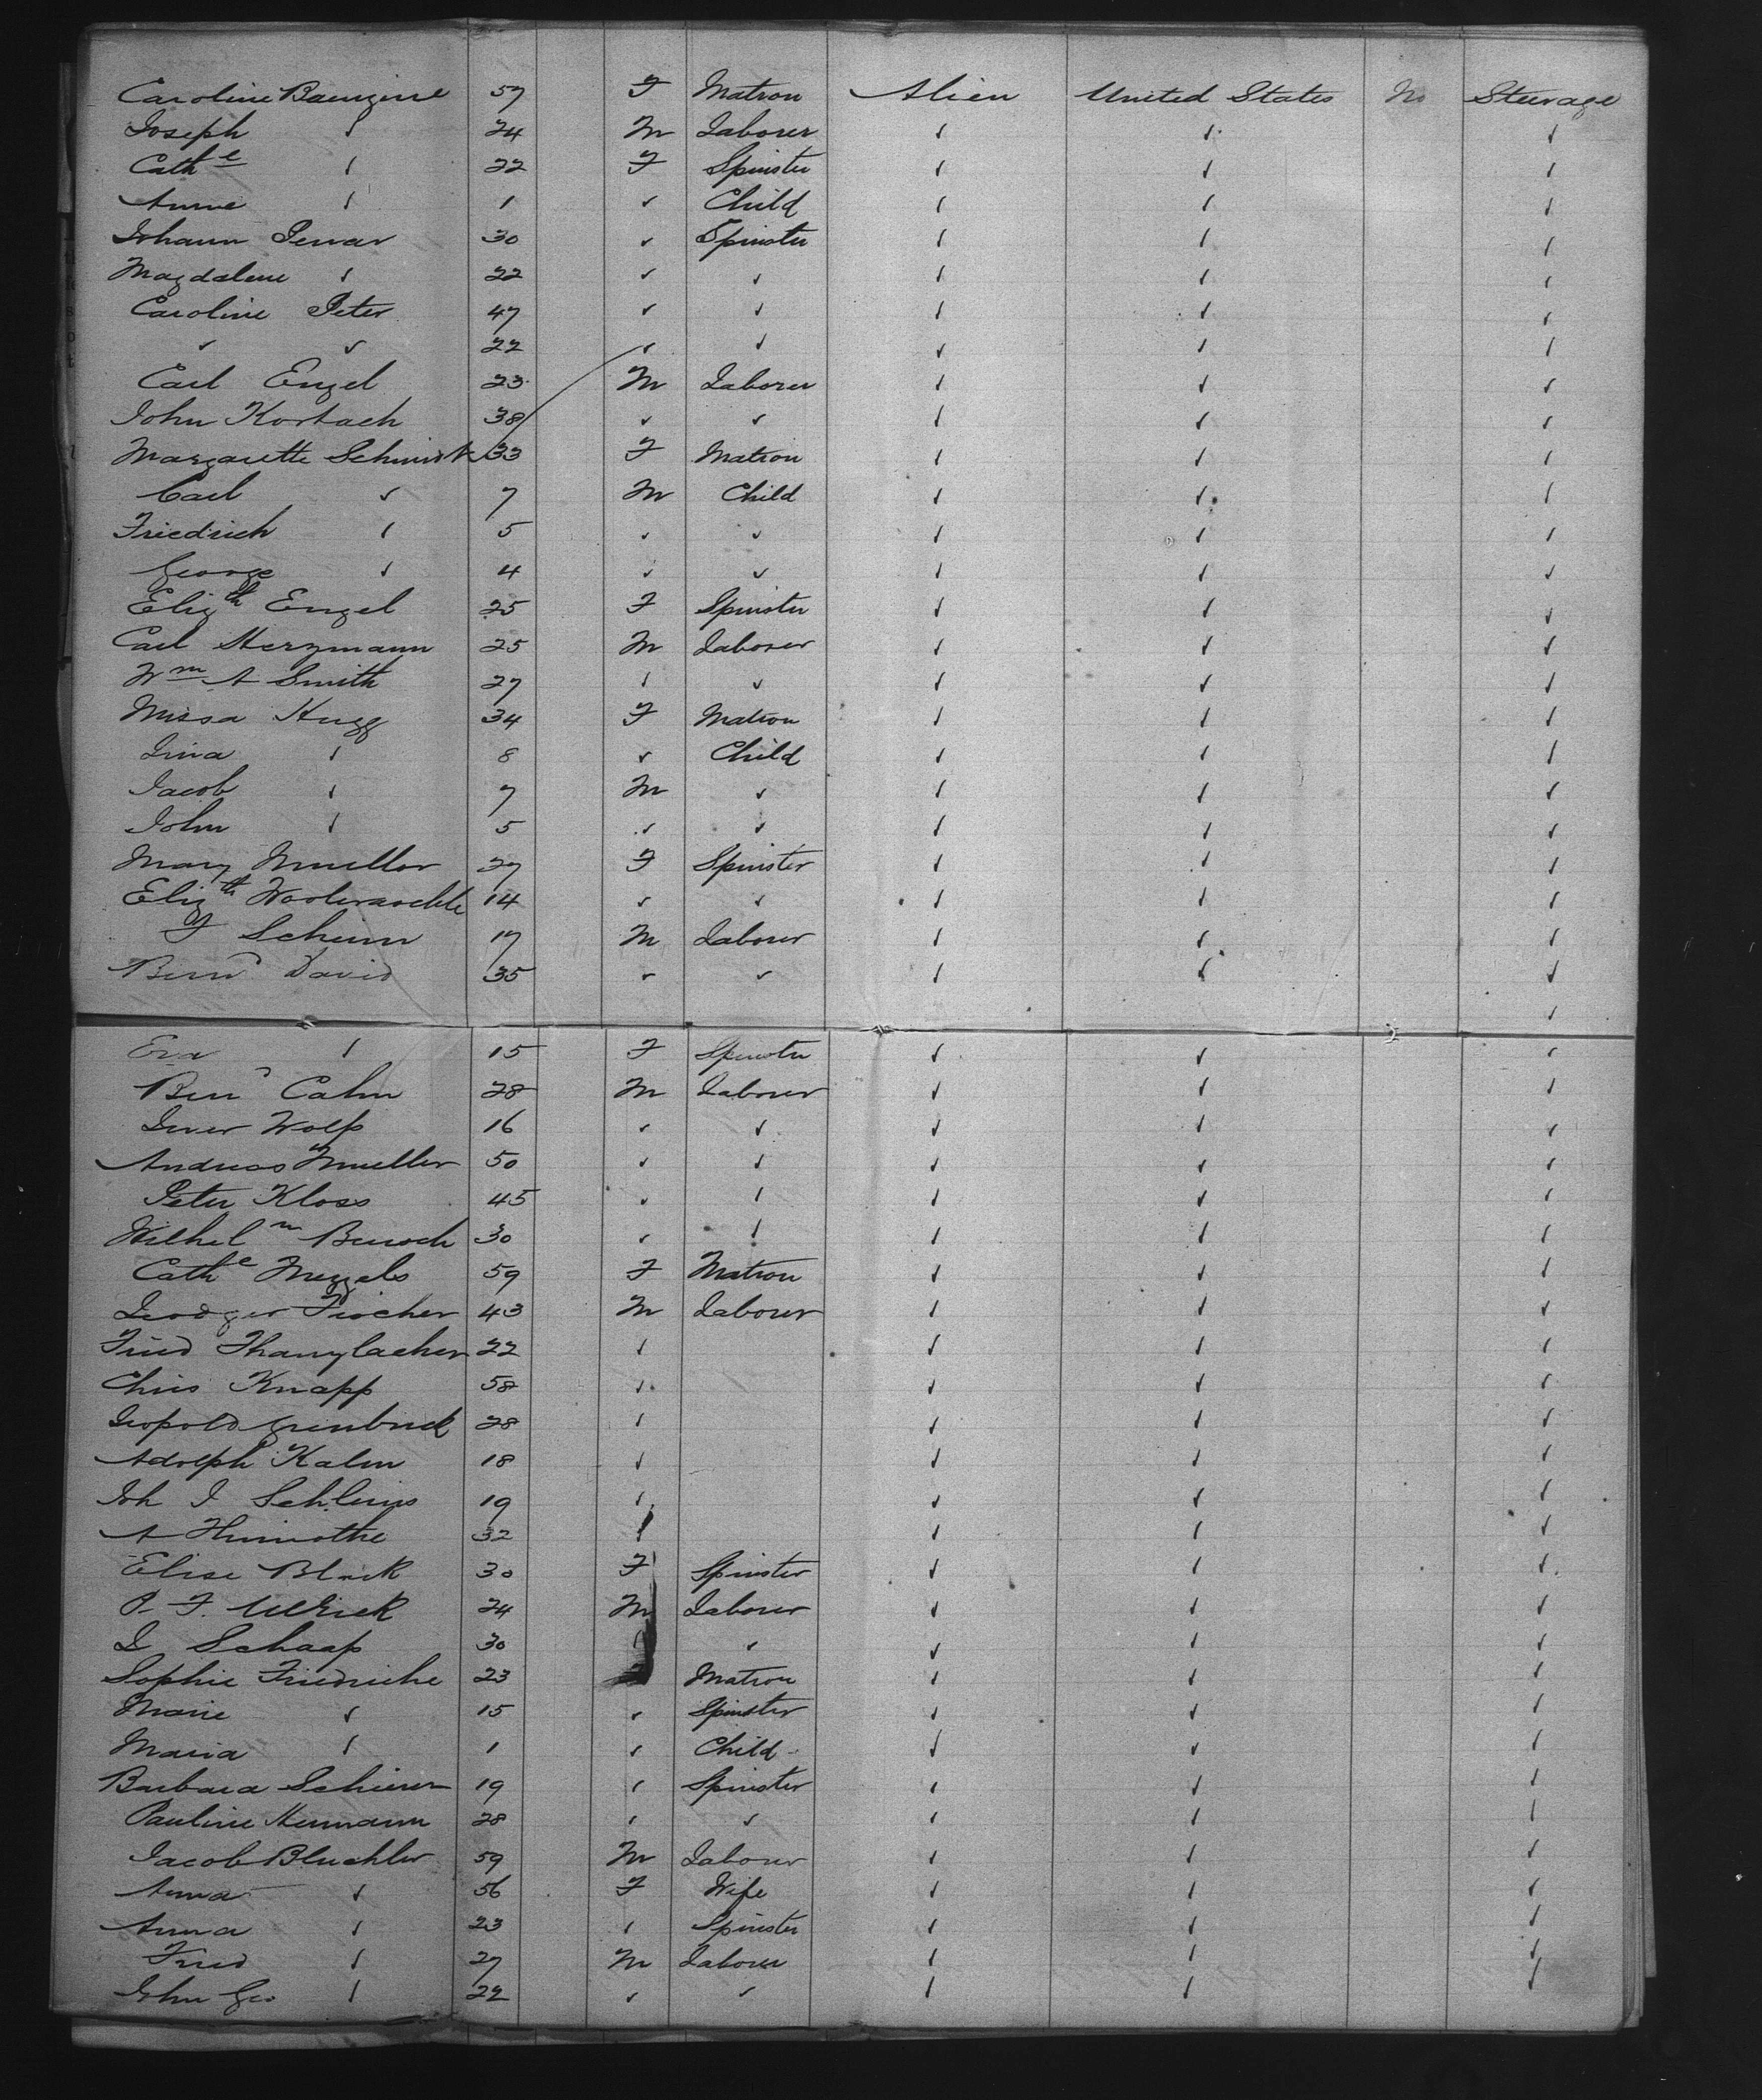 Caroline 57 F Matron Alien United States No Steerage
Joseph ✓ 24 M Laborer ✓ ✓ ✓
Cathe ✓ 22 F Spinster ✓ ✓ ✓
Anne ✓ 1 ✓ Child ✓ ✓ ✓
Johann 30 ✓ Spinster ✓ ✓ ✓
Magdalene ✓ 22 ✓ ✓ ✓ ✓ ✓
Caroline Peter 47 ✓ ✓ ✓ ✓ ✓
✓ ✓ 22 ✓ ✓ ✓ ✓ ✓
Carl Engel 23 M Laborer ✓ ✓ ✓
John Korbach 38 ✓ ✓ ✓ ✓ ✓
Margarette Schmidt 33 F Matron ✓ ✓ ✓
Carl ✓ 7 M Child ✓ ✓ ✓
Friedrich ✓ 5 ✓ ✓ ✓ ✓ ✓
George ✓ 4 ✓ ✓ ✓ ✓ ✓
Elizth Engel 25 F Spinster ✓ ✓ ✓
Carl Herzmann 25 M Laborer ✓ ✓ ✓
Wm A Smith 27 ✓ ✓ ✓ ✓ ✓
Missa Hugg 34 F Matron ✓ ✓ ✓
Lina ✓ 8 ✓ Child ✓ ✓ ✓
Jacob ✓ 7 M ✓ ✓ ✓ ✓
John ✓ 5 ✓ ✓ ✓ ✓ ✓
Mary Mueller 27 F Spinster ✓ ✓ ✓
Elizth 14 ✓ ✓ ✓ ✓ ✓
F Schum 17 M Laborer ✓ ✓ ✓
Bernd David 35 ✓ ✓ ✓ ✓ ✓
✓
Eva ✓ 15 F Spinster ✓ ✓ ✓
Bend Cahn 28 M Laborer ✓ ✓ ✓
Wolf 16 ✓ ✓ ✓ ✓ ✓
Andreas Mueller 50 ✓ ✓ ✓ ✓ ✓
Peter Kloss 45 ✓ ✓ ✓ ✓ ✓
Wilhelm 30 ✓ ✓ ✓ ✓ ✓
Cathe 59 F Matron ✓ ✓ ✓
Fischer 43 M Laborer ✓ ✓ ✓
Fried 22 ✓ ✓ ✓ ✓
Chris Knapp 58 ✓ ✓ ✓ ✓
Leopold 28 ✓ ✓ ✓ ✓
Adolph Kalm 18 ✓ ✓ ✓ ✓
Joh J 19 ✓ ✓ ✓ ✓
A 32 ✓ ✓ ✓ ✓
Elise Blank 30 F Spinster ✓ ✓ ✓
P. F. Ullrick 24 M Laborer ✓ ✓ ✓
Schaap 30 ✓ ✓ ✓ ✓
Sophie Friedriche 23 Matron ✓ ✓ ✓
Marie ✓ 15 ✓ Spinster ✓ ✓ ✓
Maria ✓ 1 ✓ Child ✓ ✓ ✓
Barbara 19 ✓ Spinster ✓ ✓ ✓
Pauline Hermann 28 ✓ ✓ ✓ ✓ ✓
Jacob Bluchler 59 M Laborer ✓ ✓ ✓
Anna ✓ 56 F Wife ✓ ✓ ✓
Anna ✓ 23 ✓ Spinster ✓ ✓ ✓
Fried ✓ 27 M Laborer ✓ ✓ ✓
John Geo ✓ 22 ✓ ✓ ✓ ✓ ✓